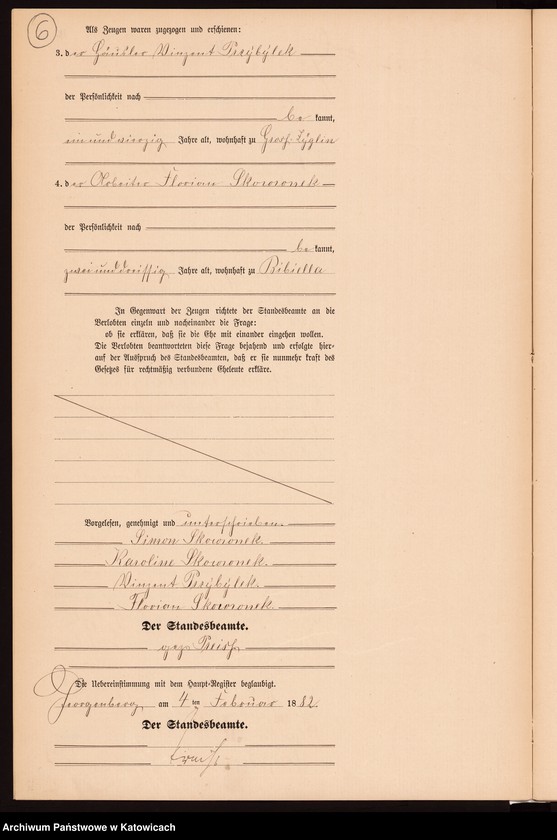 6
Als Zeugen waren zugezogen und erschienen:
3. der Häusler Vinzent Przybylek
der Persönlichkeit nach
be kannt,
ein und vierzig Jahre alt, wohnhaft zu Groß-Zyglin
4. der Arbeiter Florian Skowronek
der Persönlichkeit nach
be kannt,
zwei und dreissig Jahre alt, wohnhaft zu Bibiella
In Gegenwart der Zeugen richtete der Standesbeamte an die
Verlobten einzeln und nacheinander die Frage:
ob sie erklären, daß sie die Ehe mit einander eingehen wollen.
Die Verlobten beantworteten diese Frage bejahend und erfolgte hier-
auf der Ausspruch des Standesbeamten, daß er sie nunmehr kraft des
Gesetzes für rechtmäßig verbundene Eheleute erkläre.
Vorgelesen, genehmigt und unterschrieben.
Simon Skowronek.
Karoline Skowronek.
Vinzent Przybylek.
Florian Skowronek.
Der Standesbeamte.
gez.
Die Uebereinstimmung mit dem Haupt-Register beglaubigt.
Georgenberg, am 4 ten Februar 1882.
Der Standesbeamte.
Archiwum Państwowe w Katowicach